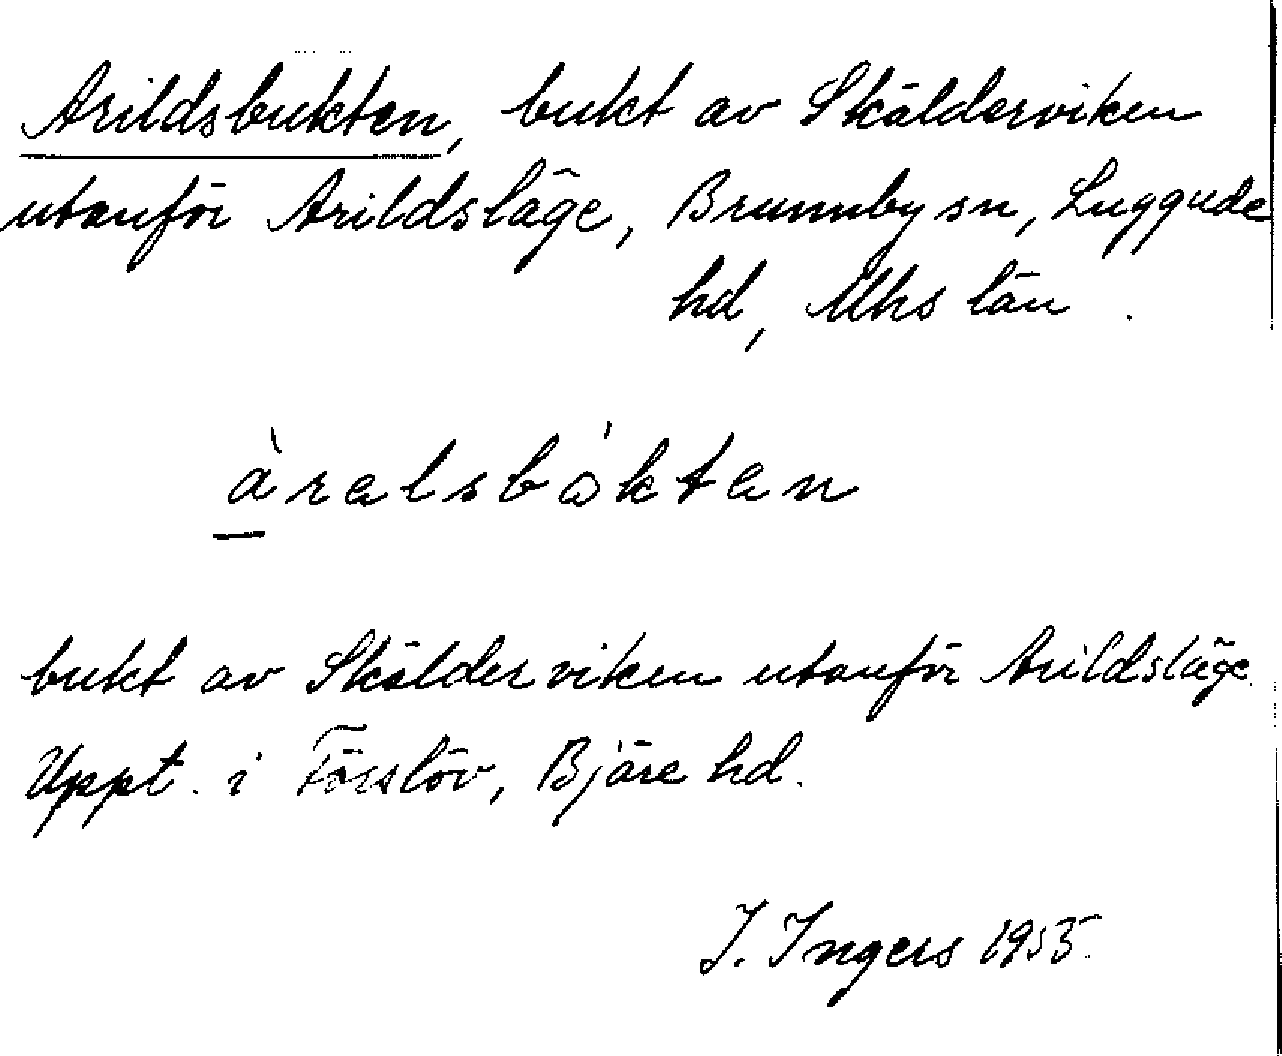 Arildsbukten, bukt av Skälderviken
utanför Arildsläge, Brunnby sn, Luggude
hd, Mhs län.
àralsbókten
bukt av Skälderviken utanför Arildsläge.
Uppt. i Förslöv, Bjäre hd.
I. Ingers 1955.